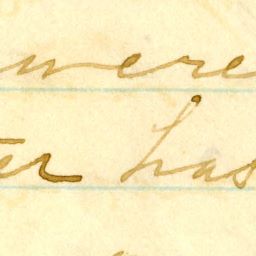 were
ter has